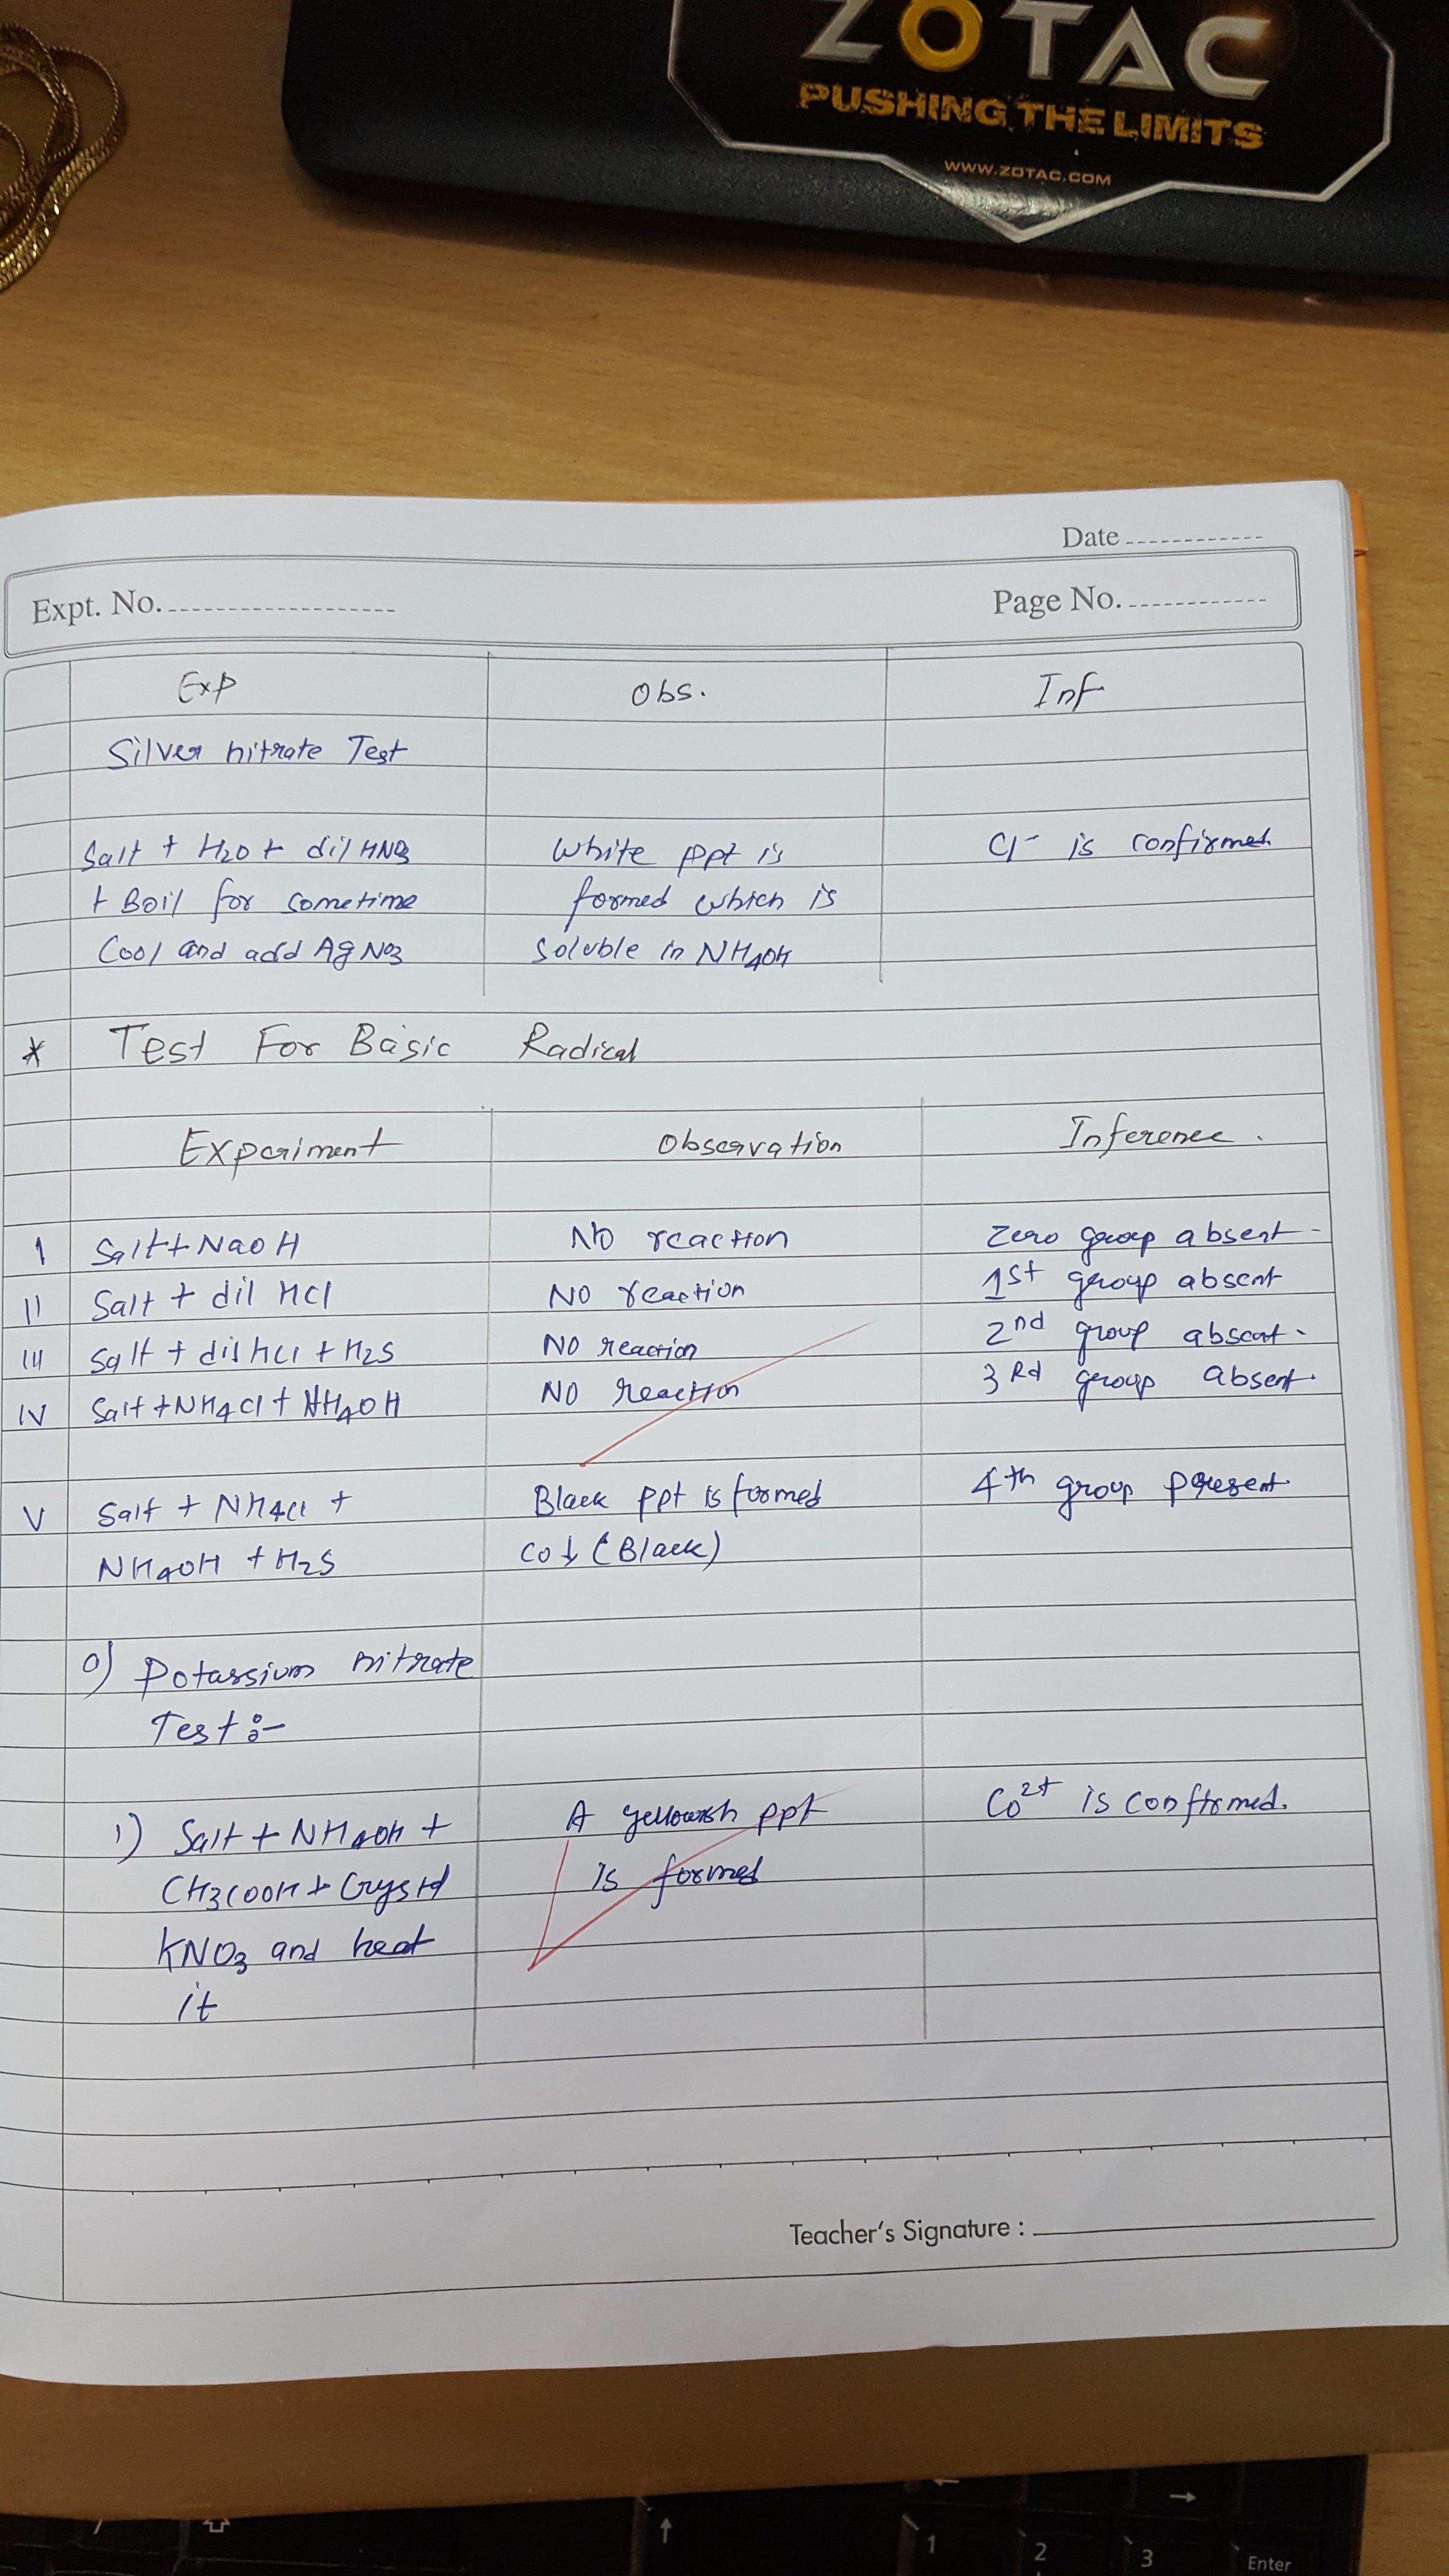 ZOTAC
PUSHING THE LIMITS
WWW.ZOTAC.COM
Date
Expt. No.
Page No.
Exp Obs. Inf
Silver nitrate Test
Salt + H2O + dil HNO3 White ppt is Cl- is confirmed
+ Boil for sometime formed which is
Cool and add AgNO3 soluble in NH4OH
* Test For Basic Radical
Experiment Observation Inference.
I Salt + NaOH No reaction Zero group absent -
II Salt + dil HCl NO reaction 1st group absent
III Salt + dil HCl + H2S NO reaction 2nd group absent -
IV Salt + NH4Cl + NH4OH NO reaction 3Rd group absent.
V Salt + NH4Cl + Black ppt is formed 4th group present
NH4OH + H2S Co↓ (Black)
0) Potassium nitrate
Test :-
1) Salt + NH4OH + A yellowish ppt Co2+ is confirmed.
CH3COOH + Crystal is formed
KNO3 and heat
it
Teacher's Signature :
1 2 3 Enter